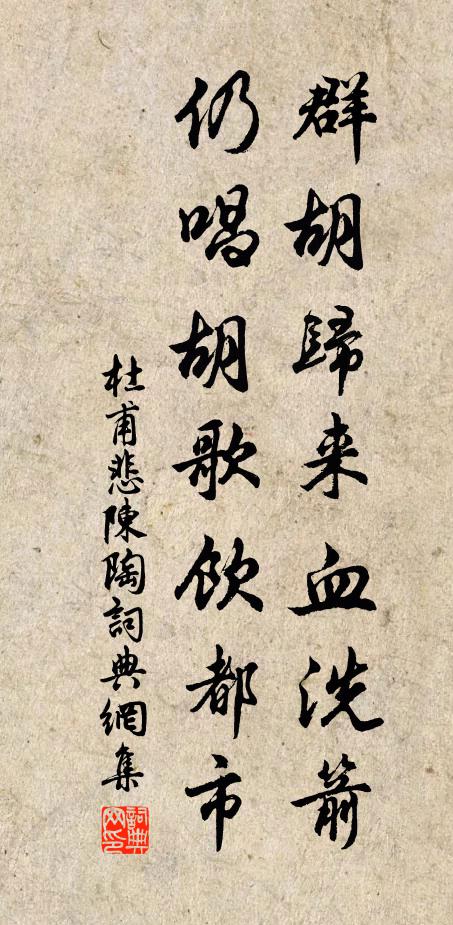 群胡歸来血洗箭
仍唱胡歌飲都市
杜甫悲陳陶詞典網集
詞典网印